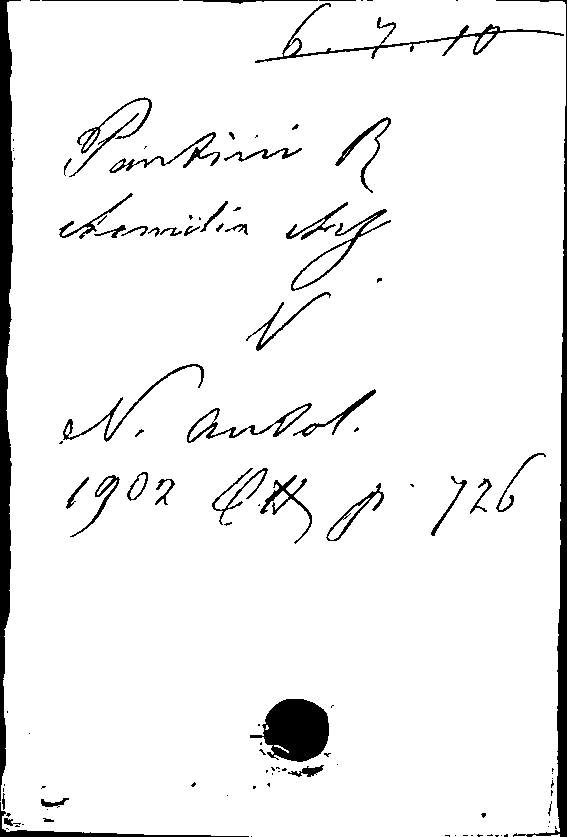 6. 7. 10
Pantini R
Aemilia Ars
V
N. Antol.
1902 p. 726